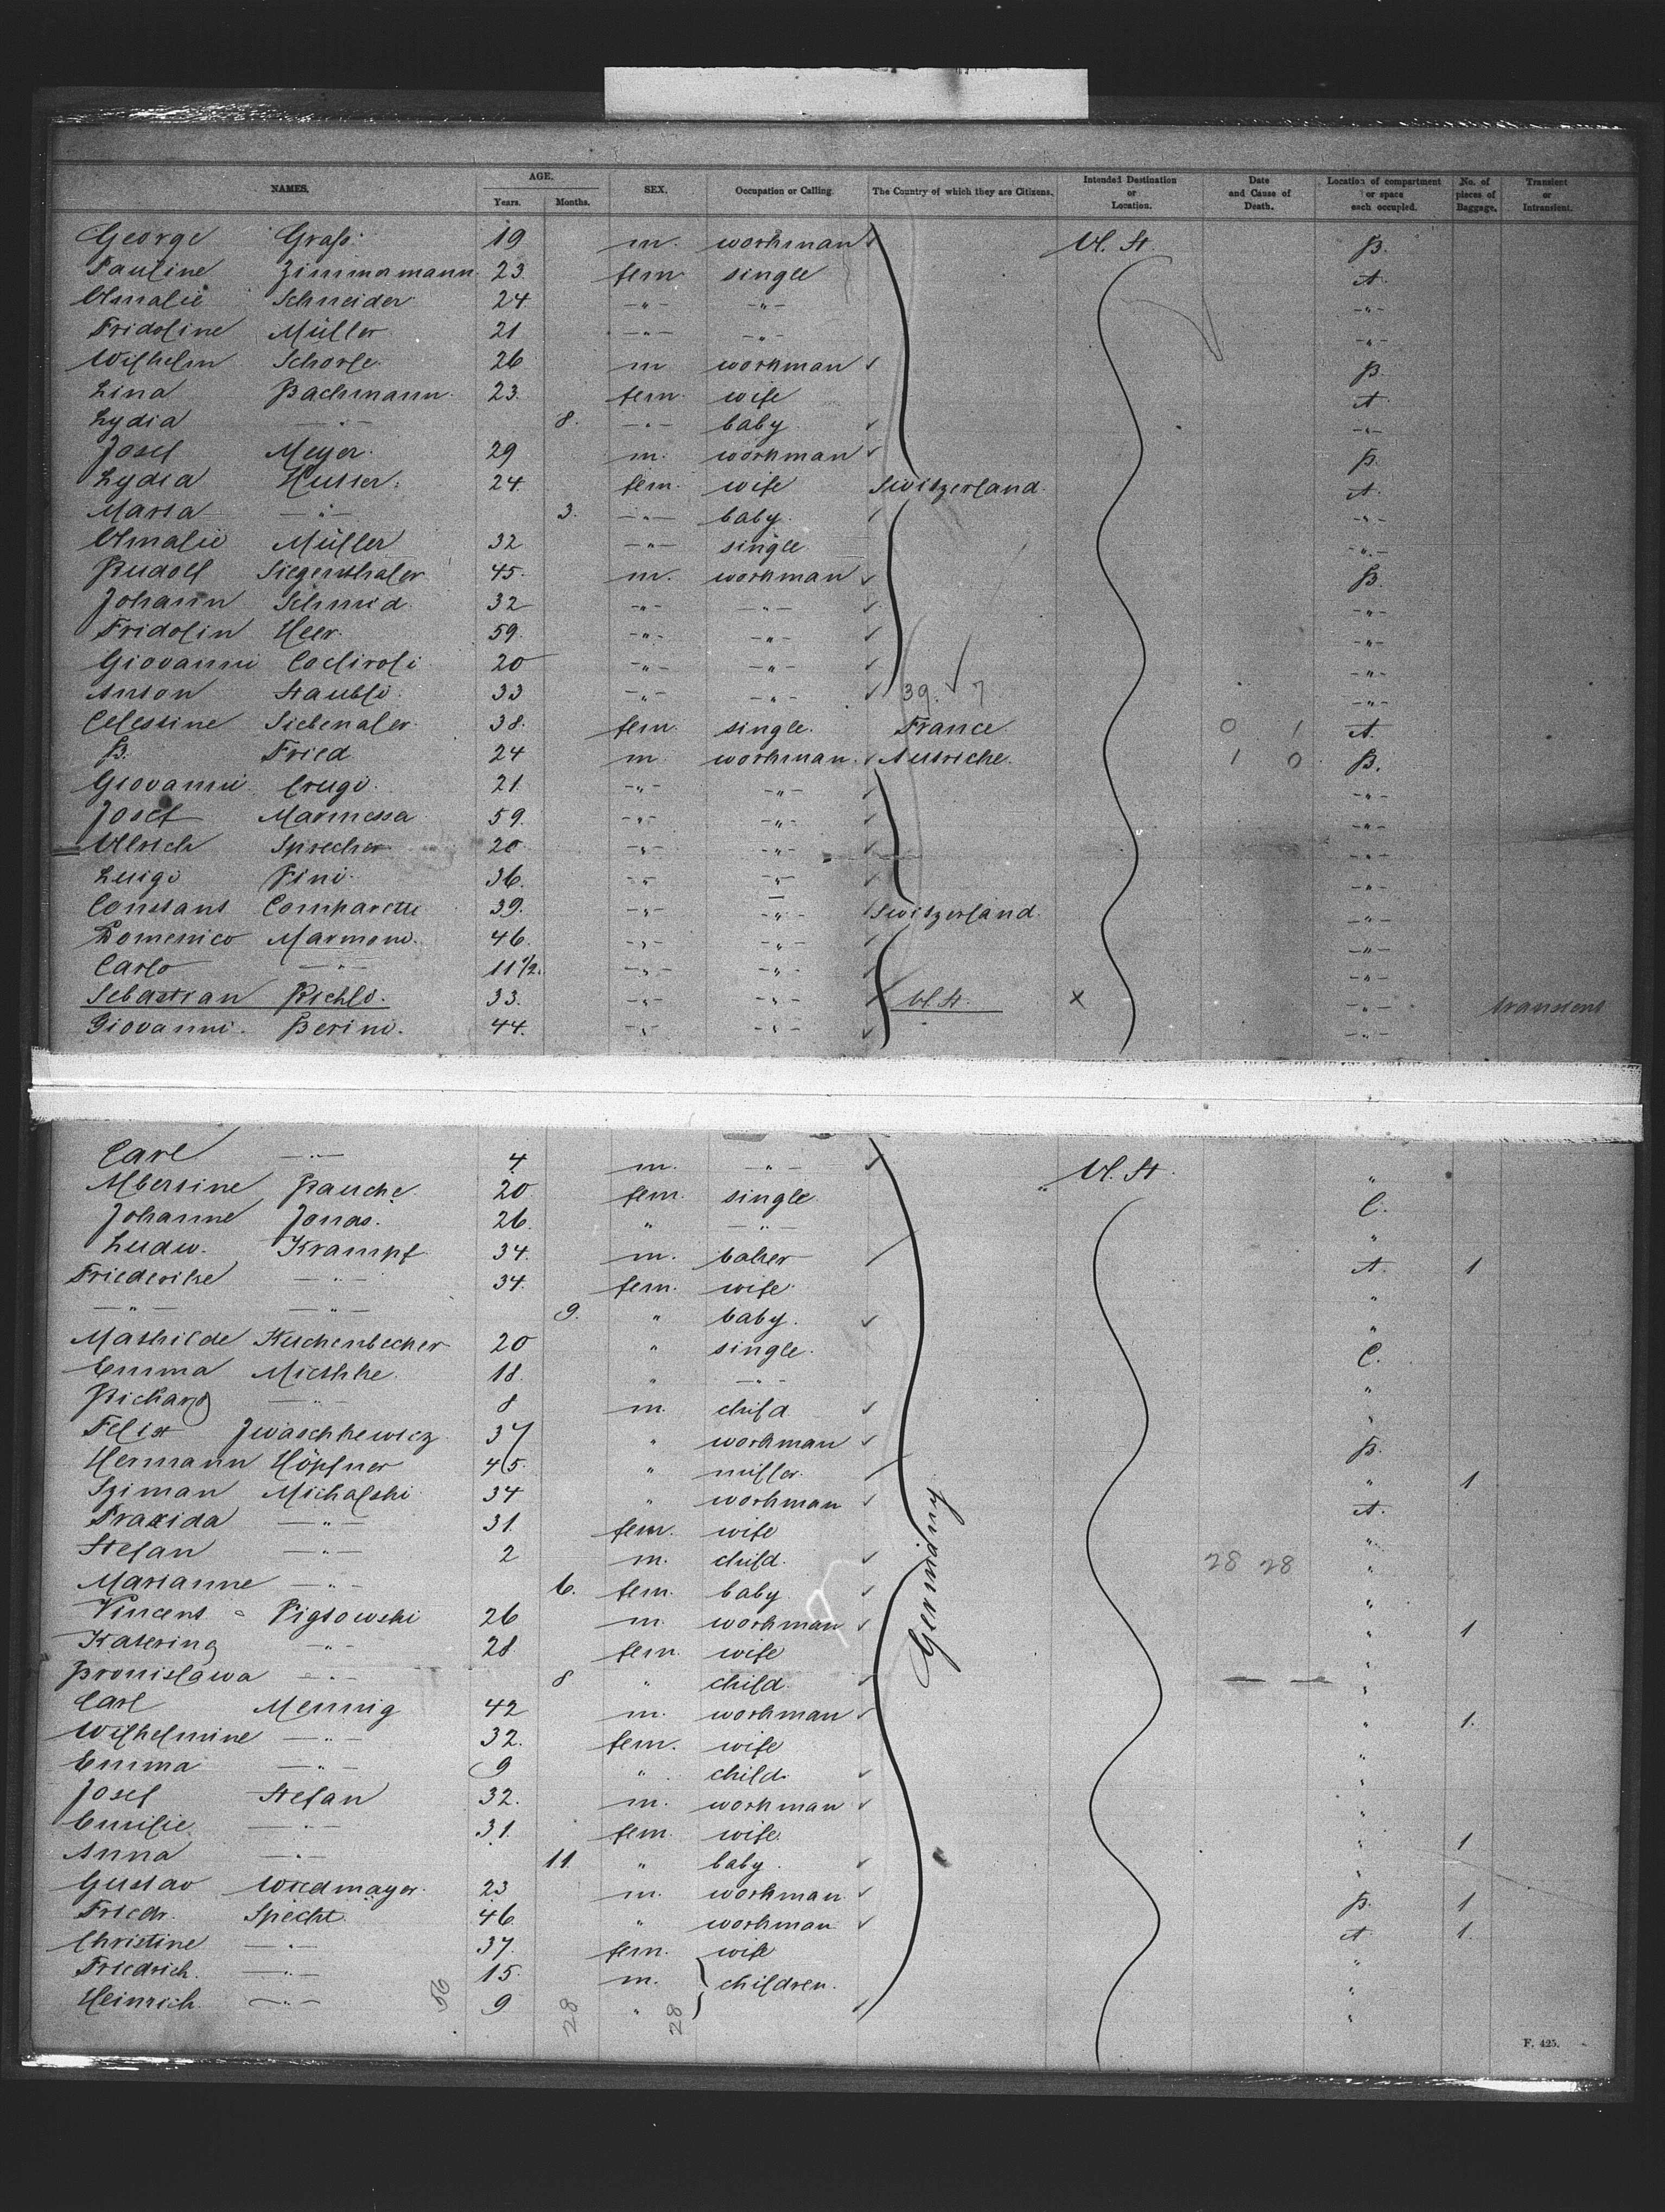 NAMES. AGE. Years. Months. SEX. Occupation or Calling. The Country of which they are Citizens. Intended Destination or Location. Date and Cause of Death. Location of compartment or space each occupied. No. of pieces of Baggage. Transient or Intransient.
George Graf 19 m. workman U. St. B.
Pauline Zimmermann 23. fem. single A.
Amalie Schneider 24 -"- -"- -"-
Fridoline Müller 21 -"- -"- -"-
Wilhelm Schorfe 26 m workman B.
Lina Bachmann 23. fem. wife A.
Lydia -"- 8. -"- baby -"-
Josef Meyer. 29 m. workman B.
Lydia Husser. 24. fem. wife Switzerland. A.
Maria -"- 3. -"- baby. -"-
Amalie Müller 32 -"- single -"-
Rudolf Siegenthaler 45. m. workman B.
Johann Schmid. 32 -"- -"- -"-
Fridolin Heer. 59. -"- -"- -"-
Giovanni 20 -"- -"- -"-
Anton Staubli. 33 -"- -"- 39. 7 -"-
Celestine Siebenaler. 38. fem. single. France 0 1 A.
B. Fried 24 m workman. Autriche. 1 0 B.
Giovanni Crugi. 21. -"- -"- -"-
Josef Marmessa 59. -"- -"- -"-
Ulrich Sprecher 20 -"- -"- -"-
Luigi Pini. 36. -"- -"- -"-
Constant Comparette 39. -"- -"- Switzerland. -"-
Domenico Marmoni. 46. -"- -"- -"-
Carlo -"- 11 1/2. -"- -"- -"-
Sebastian Richli. 33. -"- -"- U. St. x -"- transient
Giovanni. Berini. 44. -"- -"- -"-
Carl -"- 4 m. -"- U. St. "
Albertine Pasche. 20 fem. single. C.
Johanne Jonas. 26. " -"- "
Ludw. Krampf. 34. m. baker A. 1
Friederike -"- 34. fem. wife "
-"- -"- 9. " baby. "
Mathilde Kuchenbecker 20 " single. C.
Emma Mischke. 18. " -"- "
Richard -"- 8 m. child "
Felix Jwaschkewicz 37 " workman B.
Hermann Höpfner 45. " miller. " 1
Sziman Michalski 34 " workman A.
Praxida -"- 31. fem. wife "
Stefan -"- 2 m. child. 28 28 "
Marianne -"- 6. fem. baby "
Vincent Pigtowski 26 m. workman " 1
Katerina -"- 28. fem. wife "
Bronislawa -"- 8 " child. "
Carl Mennig 42 m. workman " 1.
Wilhelmine -"- 32. fem. wife "
Emma -"- 9 " child. "
Germany
Josef Stefan 32. m. workman "
Emilie -"- 31. fem. wife. " 1
Anna -"- 11. " baby. "
Gustav Wiedmayer. 23 m. workman B. 1
Friedr. Specht. 46 " workman A. 1.
Christine -"- 37. fem. wife "
Friedrich. -"- 15. m. children. "
Heinrich -"- 9 " "
56 28 28
F. 425.